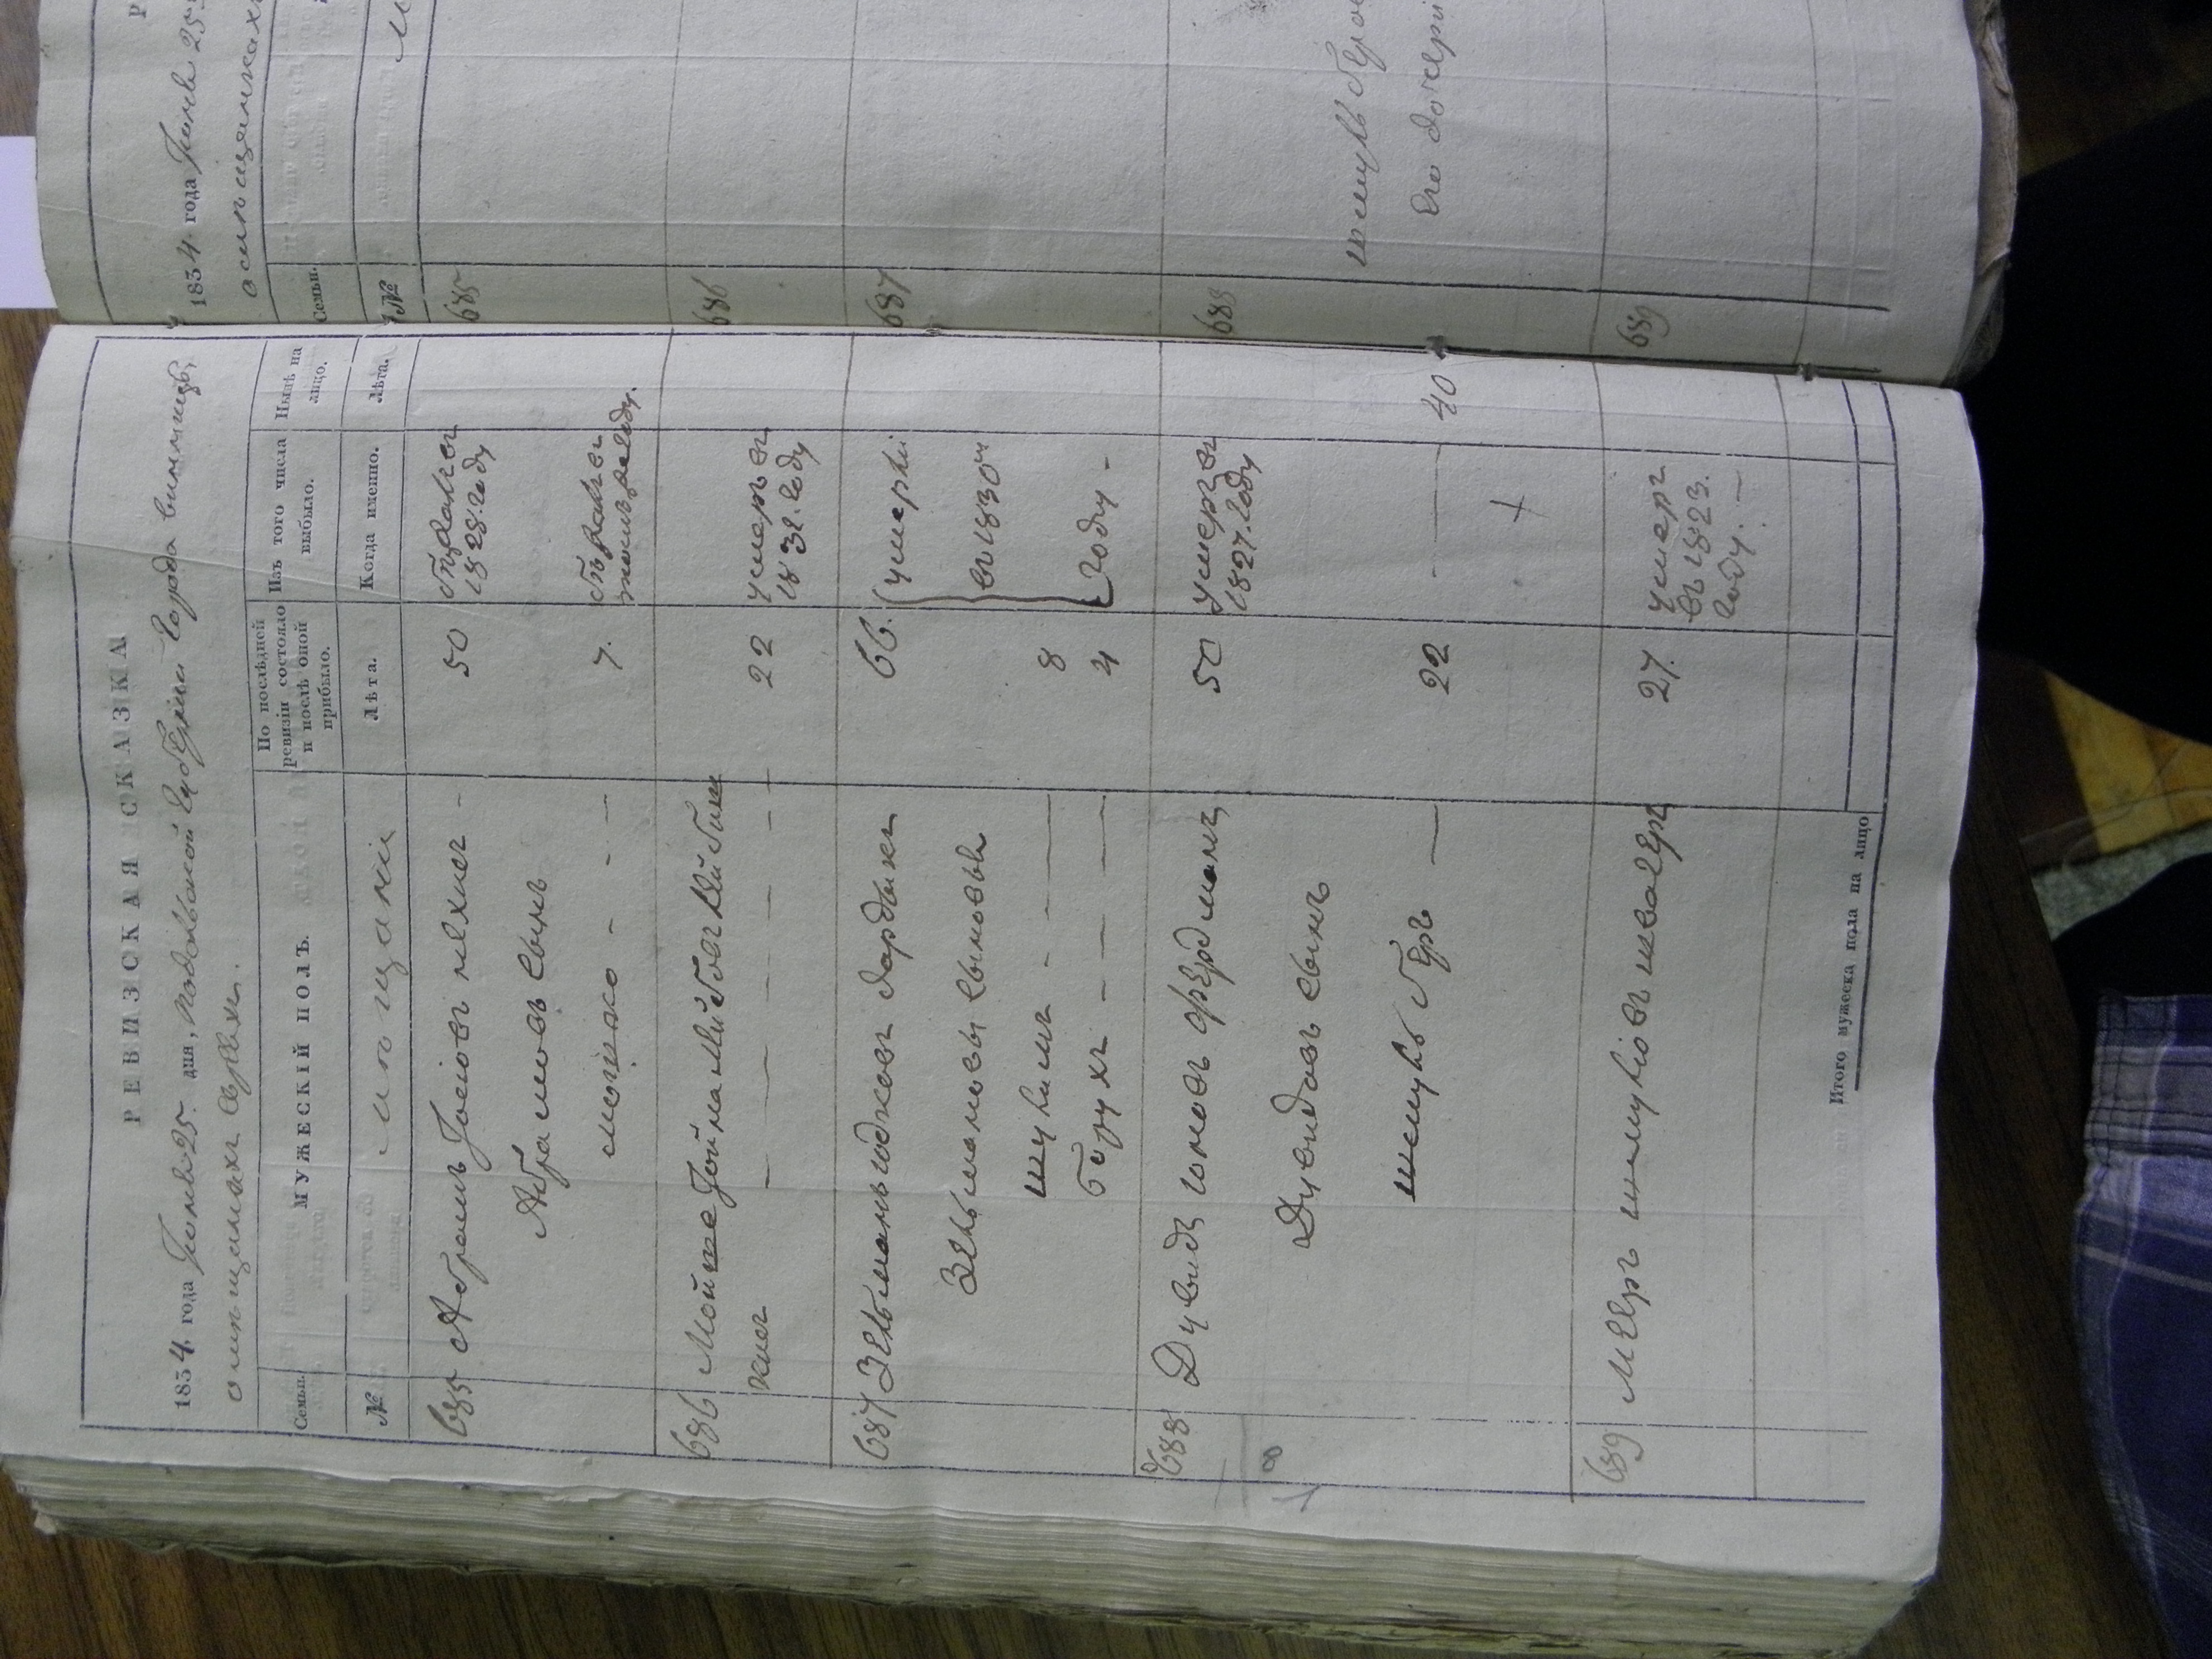 РЕВИЗСКАЯ СКАЗКА
1834. года Іюня 25. дня, Подольской Губерніи Города Винницы,
о мещанахъ Евреяхъ.
Семьи. МУЖЕСКІЙ ПОЛЪ. По послѣдней ревизіи состояло и послѣ оной прибыло. Изъ того числа выбыло. Нынѣ на лицо.
№ Мещане Лѣта. Когда именно. Лѣта.
685 Абрамъ Іосіовъ 50 1828. году
Абрамовъ сынъ
мошко 7. тогожъ году.
686 Мойше 22 умеръ въ 1832. году
687 Зельманъ юдковъ 66. умерли
Зельмановы сыновья въ 1830м
шулимъ 8
борухъ 4 году
688 Дувидъ юновъ фердманъ 50 умеръ въ 1827. году
Дувидовъ сынъ
шмуль беръ 22 40
689 мееръ шмуліовъ 27. умеръ въ 1823. году.
Итого мужеска пола на лицо
1834. года Іюня 25
о мещанкахъ
Семьи.
№
685
686
687
688
шмуль бера
его дочери
689